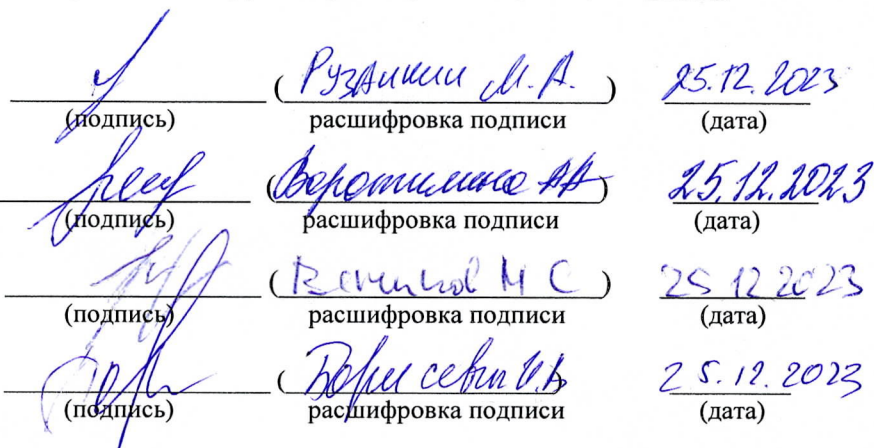 (Рузанкин М. А.) 25.12.2023
(подпись) расшифровка подписи (дата)
(Воротилина АА) 25.12.2023
(подпись) расшифровка подписи (дата)
( М С ) 25 12 2023
(подпись) расшифровка подписи (дата)
(Борисевич И.В) 25.12.2023
(подпись) расшифровка подписи (дата)